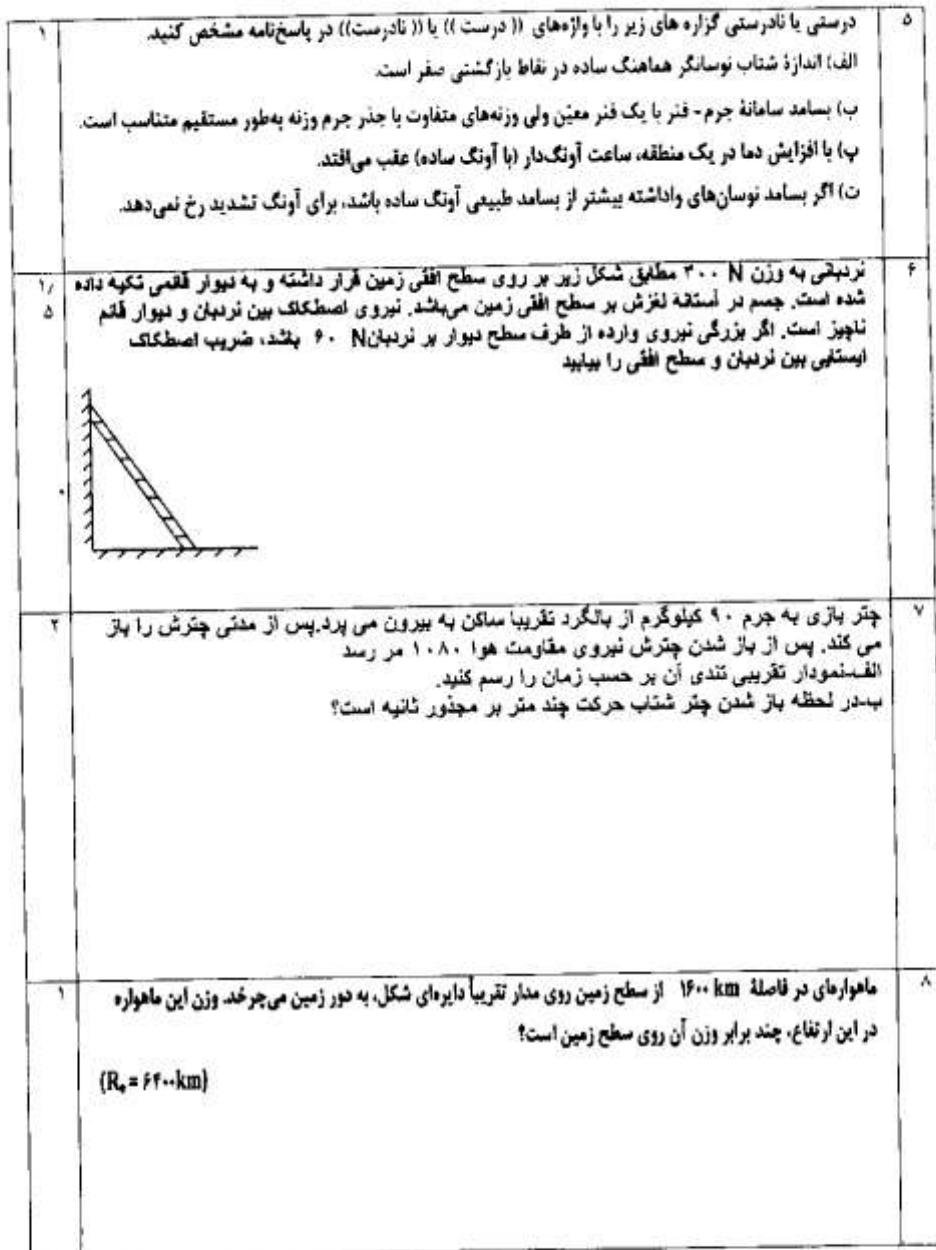 ۵
درستی یا نادرستی گزاره های زیر را با واژه‌های (( درست )) یا (( نادرست)) در پاسخ‌نامه مشخص کنید.
۱
الف) اندازهٔ شتاب نوسانگر هماهنگ ساده در نقاط بازگشتی صفر است.
ب) بسامد سامانهٔ جرم- فنر با یک فنر معیّن ولی وزنه‌های متفاوت با جذر جرم وزنه به‌طور مستقیم متناسب است.
پ) با افزایش دما در یک منطقه، ساعت آونگ‌دار (با آونگ ساده) عقب می‌افتد.
ت) اگر بسامد نوسان‌های واداشته بیشتر از بسامد طبیعی آونگ ساده باشد، برای آونگ تشدید رخ نمی‌دهد.
۶
نردبانی به وزن ۳۰۰ N مطابق شکل زیر بر روی سطح افقی زمین قرار داشته و به دیوار قائمی تکیه داده
۱/
شده است. جسم در آستانه لغزش بر سطح افقی زمین می‌باشد. نیروی اصطکاک بین نردبان و دیوار قائم
۵
ناچیز است. اگر بزرگی نیروی وارده از طرف سطح دیوار بر نردبان ۶۰ N باشد، ضریب اصطکاک
ایستایی بین نردبان و سطح افقی را بیابید
۷
چتر بازی به جرم ۹۰ کیلوگرم از بالگرد تقریبا ساکن به بیرون می پرد.پس از مدتی چترش را باز
۲
می کند. پس از باز شدن چترش نیروی مقاومت هوا ۱۰۸۰ مر رسد
الف-نمودار تقریبی تندی آن بر حسب زمان را رسم کنید.
ب-در لحظه باز شدن چتر شتاب حرکت چند متر بر مجذور ثانیه است؟
۸
ماهواره‌ای در فاصلهٔ ۱۶۰۰ km از سطح زمین روی مدار تقریباً دایره‌ای شکل، به دور زمین می‌چرخد. وزن این ماهواره
۱
در این ارتفاع، چند برابر وزن آن روی سطح زمین است؟
(Rₑ = ۶۴۰۰km)